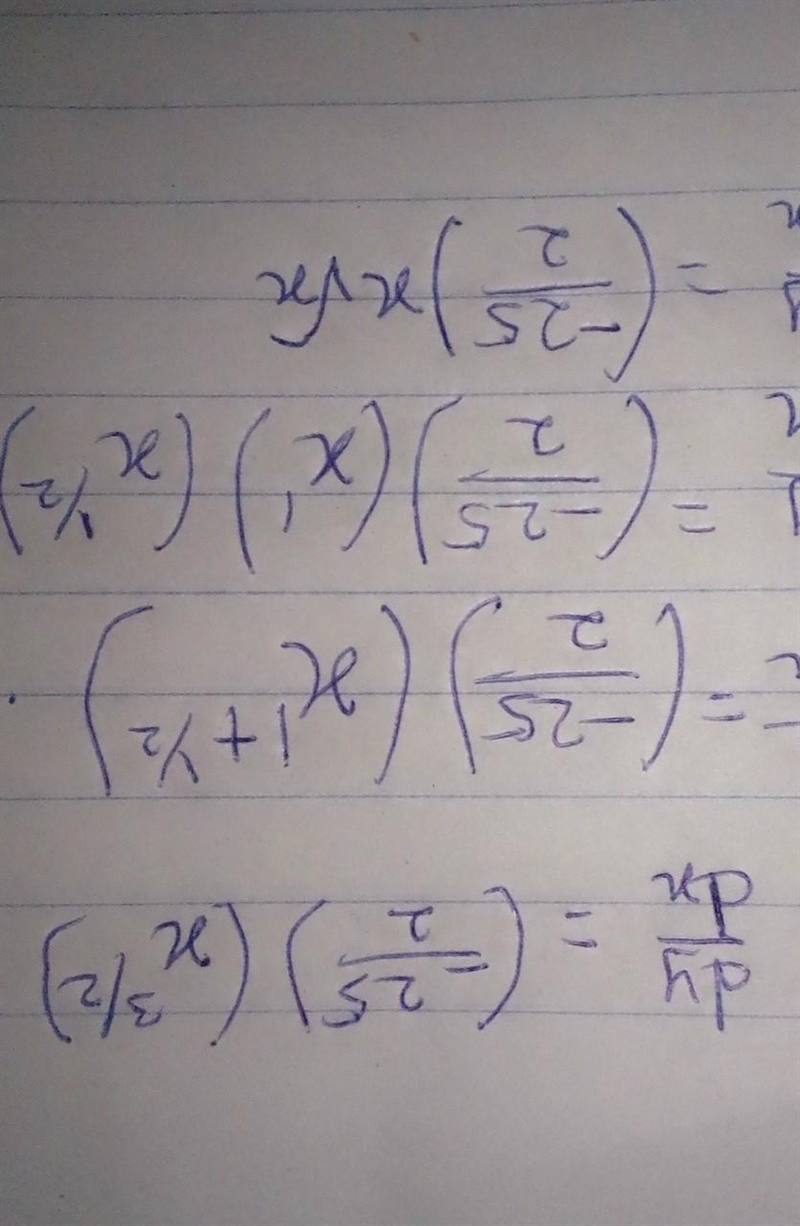 dy/dx = (-25/2)(x^3/2)
= (-25/2)(x^1+1/2)
= (-25/2)(x^1)(x^1/2)
= (-25/2)x√x